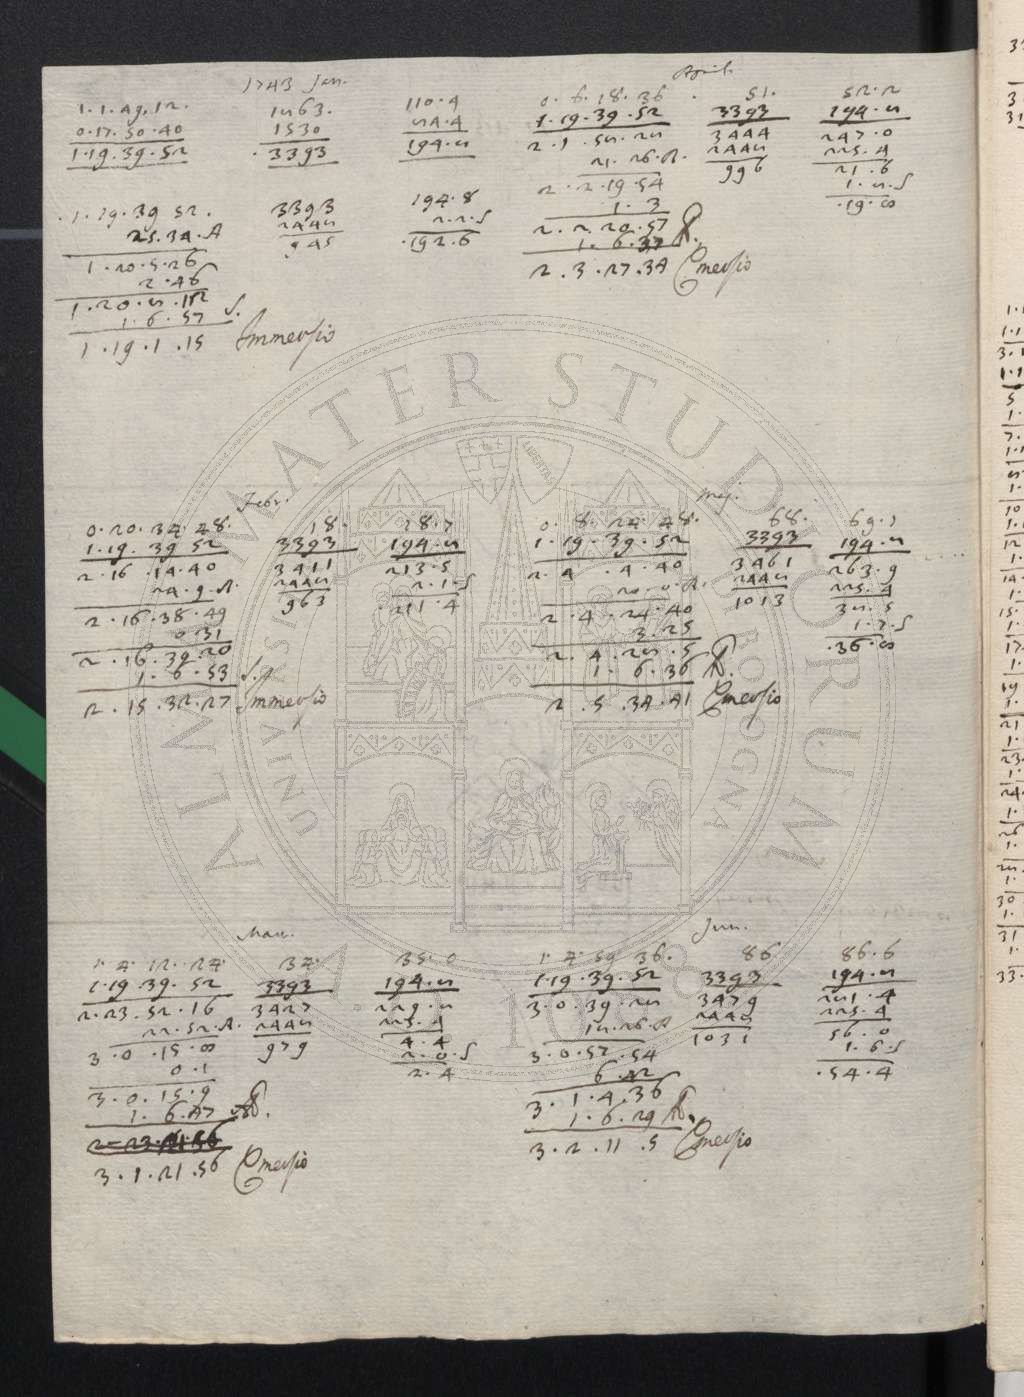 1743 Jan.
1.1.49.12. 1863. 110.4
0.17.50.40 1530 84.4
1.19.39.52 3393 194.8
1.19.39.52. 3393 194.8
25.34.A 2448 2.2.S
1.20.5.26 945 192.6
2.46
1.20.8.12
1.6.57 S.
1.19.1.15 Immersio
April.
0.6.18.36 51. 52.2
1.19.39.52 3393 194.8
2.1.58.28 3444 247.0
21.26.A. 2448 225.4
2.2.19.54 996 21.6
1.3 1.8.S
2.2.20.57 19.8
1.6.37 A.
2.3.27.34 Emersio
Febr.
0.20.34.48. 18. 18.7
1.19.39.52 3393 194.8
2.16.14.40 3411 213.5
24.9.A. 2448 2.1.S
2.16.38.49 963 211.4
0.31
2.16.39.20
1.6.53 S.
2.15.32.27 Immersio
May.
0.8.24.48. 68. 69.1
1.19.39.52 3393 194.8
2.4.4.40 3461 263.9
20.0.A. 2448 225.4
2.4.24.40 1013 38.5
3.25 1.7.S
2.4.28.5 36.8
1.6.36 A.
2.5.34.41 Emersio
Mar.
1.4.12.24 34. 35.0
1.19.39.52 3393 194.8
2.23.52.16 3427 229.8
22.52.A. 2448 225.4
3.0.15.8 979 4.4
0.1 2.0.S
3.0.15.9 2.4
1.6.47 A.
3.1.21.56 Emersio
Jun.
1.4.59.36. 86 86.6
1.19.39.52 3393 194.8
3.0.39.28 3479 281.4
18.26.A 2448 225.4
3.0.57.54 1031 56.0
6.42 1.6.S
3.1.4.36 54.4
1.6.29 A.
3.2.11.5 Emersio
ALMA MATER STUDIORUM
A.D. 1088
LIBERTAS